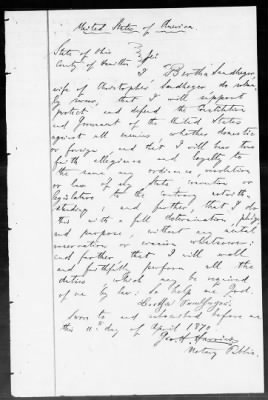 United States of America
State of Ohio
County of Hamilton } ss:
I Bertha Sandheger
wife of Christopher Sandheger do solem
ly swear, that I will support
protect and defend the Constitution
and Government of the United States
against all enemies whether domestic
or foreign and that I will bear true
faith allegiance and loyalty to
the same, any ordinance, resolution
or law of any State convention or
legislature to the contrary notwith
standing; and further, that I do
this with a full determination, pledge
and purpose, without any mental
reservation or evasion whatsoever:
and further that I will well
and faithfully perform all the
duties which may be required
of me by law: So help me God.
Bertha
Sworn to and subscribed before me
this 11th day of April 1870
Geo. H.
Notary Public.